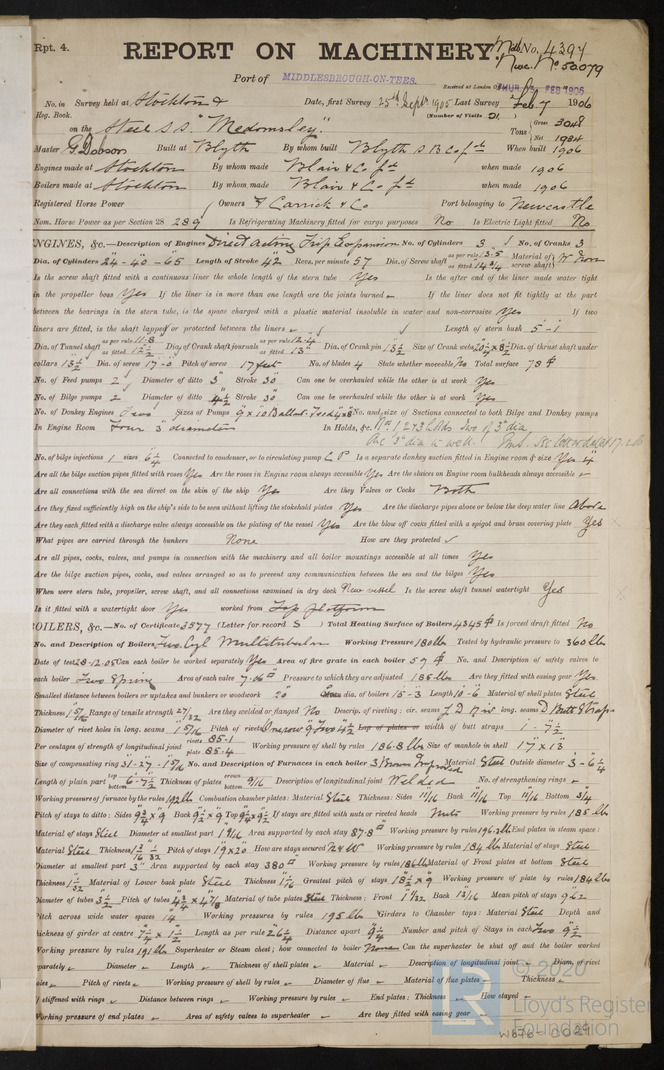 Rpt. 4.
REPORT ON MACHINERY. No. 4394
No. 50079
Port of MIDDLESBROUGH-ON-TEES.
Received at London Office FEB 1906
No. in Survey held at Stockton & Date, first Survey 25th Septr 1905 Last Survey Feb. 7 1906
Reg. Book. (Number of Visits 21)
on the Steel S.S. "Medomsley" Tons Gross 3048 Net 1984
Master G. Dobson Built at Blyth By whom built Blyth S B Co Ld When built 1906
Engines made at Stockton By whom made Blair & Co Ld when made 1906
Boilers made at Stockton By whom made Blair & Co Ld when made 1906
Registered Horse Power Owners Carrick & Co Port belonging to Newcastle
Nom. Horse Power as per Section 28 289 Is Refrigerating Machinery fitted for cargo purposes No Is Electric Light fitted No
ENGINES, &c.—Description of Engines Direct Acting Trip Expansion No. of Cylinders 3 No. of Cranks 3
Dia. of Cylinders 24-40-65 Length of Stroke 42 Revs. per minute 57 Dia. of Screw shaft as per rule 13.5 as fitted 14 3/4 Material of screw shaft W Iron
Is the screw shaft fitted with a continuous liner the whole length of the stern tube Yes Is the after end of the liner made water tight
in the propeller boss Yes If the liner is in more than one length are the joints burned If the liner does not fit tightly at the part
between the bearings in the stern tube, is the space charged with a plastic material insoluble in water and non-corrosive Yes If two
liners are fitted, is the shaft lapped or protected between the liners Length of stern bush 5'-1"
Dia. of Tunnel shaft as per rule 11.8 as fitted 12 1/2 Dia. of Crank shaft journals as per rule 12.4 as fitted 13" Dia. of Crank pin 13 1/2 Size of Crank webs Dia. of thrust shaft under
collars 13 1/2 Dia. of screw 17-0 Pitch of screw 17 feet No. of blades 4 State whether moveable No Total surface 78
No. of Feed pumps 2 Diameter of ditto 3 Stroke 30" Can one be overhauled while the other is at work Yes
No. of Bilge pumps 2 Diameter of ditto 4 1/2 Stroke 30" Can one be overhauled while the other is at work Yes
No. of Donkey Engines Two Sizes of Pumps 9 x 10 Ballast. Feed No. and size of Suctions connected to both Bilge and Donkey pumps
In Engine Room Four 3" diameter In Holds, &c. No. 1 & 3 Holds Two of 3" dia.
One 3" dia in well.
No. of bilge injections 1 sizes 6 1/4 Connected to condenser, or to circulating pump C P Is a separate donkey suction fitted in Engine room & size Yes 4"
Are all the bilge suction pipes fitted with roses Yes Are the roses in Engine room always accessible Yes Are the sluices on Engine room bulkheads always accessible
Are all connections with the sea direct on the skin of the ship Yes Are they Valves or Cocks Both
Are they fixed sufficiently high on the ship's side to be seen without lifting the stokehold plates Yes Are the discharge pipes above or below the deep water line Above
Are they each fitted with a discharge valve always accessible on the plating of the vessel Yes Are the blow off cocks fitted with a spigot and brass covering plate Yes
What pipes are carried through the bunkers None How are they protected
Are all pipes, cocks, valves, and pumps in connection with the machinery and all boiler mountings accessible at all times Yes
Are the bilge suction pipes, cocks, and valves arranged so as to prevent any communication between the sea and the bilges Yes
When were stern tube, propeller, screw shaft, and all connections examined in dry dock New vessel Is the screw shaft tunnel watertight Yes
Is it fitted with a watertight door Yes worked from Top platform
BOILERS, &c.—No. of Certificate 3577 (Letter for record S) Total Heating Surface of Boilers 4345 Is forced draft fitted No
No. and Description of Boilers Two Cyl Multitubular Working Pressure 180 lb Tested by hydraulic pressure to 360 lb
Date of test 28.12.05 Can each boiler be worked separately Yes Area of fire grate in each boiler 59 No. and Description of safety valves to
each boiler Two Spring Area of each valve 7.06 Pressure to which they are adjusted 185 lb Are they fitted with easing gear Yes
Smallest distance between boilers or uptakes and bunkers or woodwork 20" dia. of boilers 15-3 Length 10-6 Material of shell plates Steel
Thickness 1 5/16 Range of tensile strength 27/32 Are they welded or flanged No Descrip. of riveting: cir. seams long. seams
Diameter of rivet holes in long. seams 1 5/16 Pitch of rivets Lap of plates or width of butt straps
Per centages of strength of longitudinal joint rivets 85.1 plate 85.4 Working pressure of shell by rules 186.8 lb Size of manhole in shell 17" x 13"
Size of compensating ring No. and Description of Furnaces in each boiler 3 Material Steel Outside diameter 3-6 1/4
Length of plain part top bottom Thickness of plates crown bottom 9/16 Description of longitudinal joint Welded No. of strengthening rings
Working pressure of furnace by the rules 192 lb Combustion chamber plates: Material Steel Thickness: Sides 11/16 Back 11/16 Top 11/16 Bottom 3/4
Pitch of stays to ditto: Sides Back Top If stays are fitted with nuts or riveted heads Nuts Working pressure by rules 185 lb
Material of stays Steel Diameter at smallest part Area supported by each stay 87.8 Working pressure by rules End plates in steam space:
Material Steel Thickness Pitch of stays 19 x 20 How are stays secured N & W Working pressure by rules 184 lb Material of stays Steel
Diameter at smallest part 3" Area supported by each stay 380 Working pressure by rules 186 lb Material of Front plates at bottom Steel
Thickness Material of Lower back plate Steel Thickness Greatest pitch of stays Working pressure of plate by rules 184 lb
Diameter of tubes 3 1/2 Pitch of tubes Material of tube plates Steel Thickness: Front Back 13/16 Mean pitch of stays
Pitch across wide water spaces 14" Working pressures by rules 195 lb Girders to Chamber tops: Material Steel Depth and
thickness of girder at centre Length as per rule Distance apart Number and pitch of Stays in each Two 9 1/2
Working pressure by rules 191 lb Superheater or Steam chest; how connected to boiler None Can the superheater be shut off and the boiler worked
separately Diameter Length Thickness of shell plates Material Description of longitudinal joint Diam. of rivet
holes Pitch of rivets Working pressure of shell by rules Diameter of flue Material of flue plates Thickness
If stiffened with rings Distance between rings Working pressure by rules End plates: Thickness How stayed
Working pressure of end plates Area of safety valves to superheater Are they fitted with easing gear
© 2020
Lloyd's Register
Foundation
W676-0029